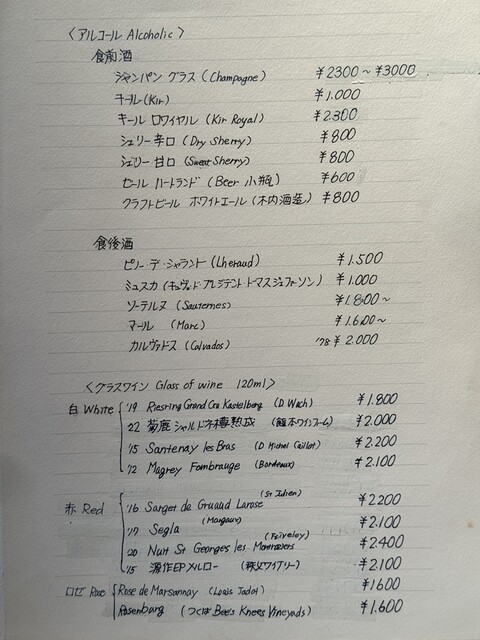 〈アルコール Alcoholic〉
食前酒
シャンパン グラス (Champagne) ¥2300～¥3000
キール (Kir) ¥1,000
キール ロワイヤル (Kir Royal) ¥2,300
シェリー 辛口 (Dry Sherry) ¥800
シェリー 甘口 (Sweet Sherry) ¥800
ビール ハートランド (Beer 小瓶) ¥600
クラフトビール ホワイトエール (木内酒造) ¥800
食後酒
ピノー・デ・シャラント (Lheraud) ¥1.500
ミュスカ (キュヴェ・ド・プレジデント トーマス ジェファーソン) ¥1.000
ソーテルヌ (Sauternes) ¥1.800～
マール (Marc) ¥1.600～
カルヴァドス (Calvados) '78 ¥2.000
〈グラスワイン Glass of wine 120ml〉
白 White '19 Riesring Grand Cru Kastelberg (D Wach) ¥1.800
'22 菊鹿 シャルドネ樽熟成 (熊本ワインファーム) ¥2.000
'15 Santenay les Bras (D Michel Caillot) ¥2.200
'12 Magrey Fombrauge (Bordeaux) ¥2.100
赤 Red '16 Sarget de Gruaud Larose (St Julien) ¥2200
'17 Segla (Margaux) ¥2.100
'20 Nuit St Georges les (Faiveley) ¥2.400
'15 源作印 メルロー (秩父ワイナリー) ¥2100
ロゼ Rose Rose de Marsannay (Louis Jadot) ¥1600
Rosenburg (つくば Bee's Knees Vineyads) ¥1.600